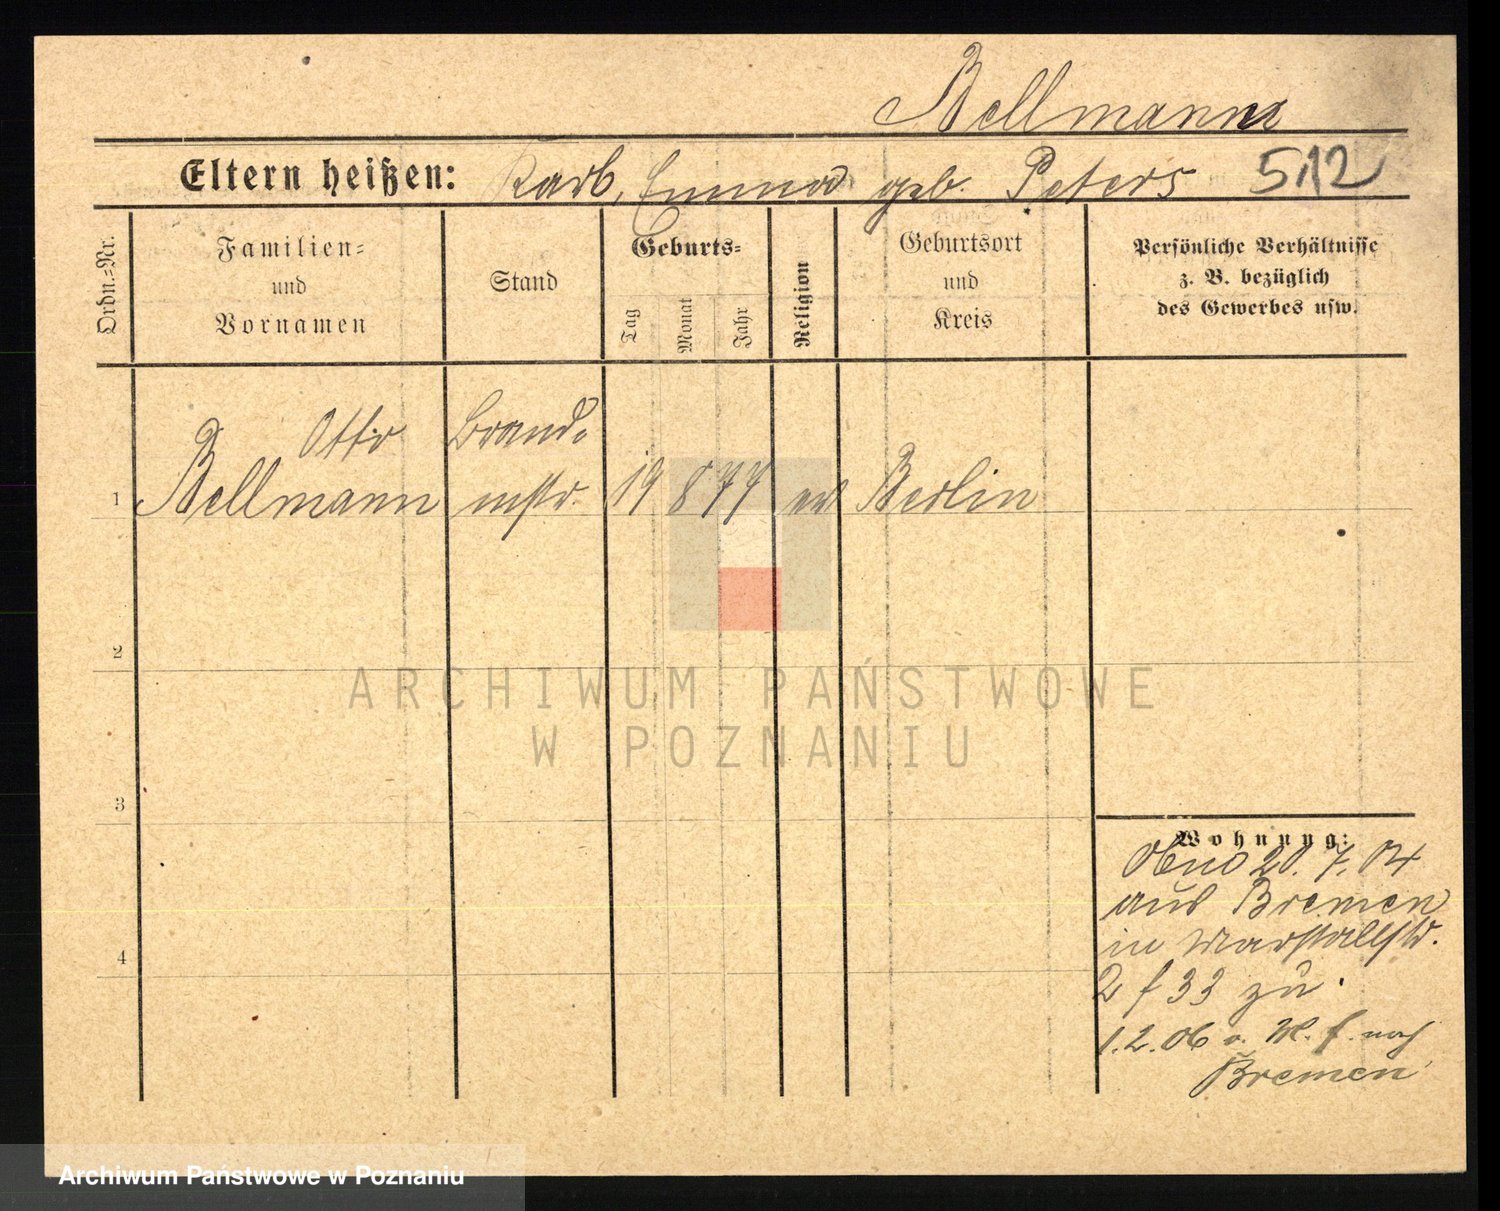 Bellmann
Eltern heißen: Karl, Emma geb. Peters 512
Ordn.=Nr.
Familien=
und
Vornamen
Stand
Geburts=
Tag
Monat
Jahr
Religion
Geburtsort
und
Kreis
Persönliche Verhältnisse
z. B. bezüglich
des Gewerbes usw.
Otto Brand=
1 Bellmann mstr. 19 8 77 ev Berlin
2
3
4
Wohnung:
20. 7. 04
aus Bremen
in Marstallstr.
2 f 33 zu.
1. 2. 06 nach
Bremen
ARCHIWUM PAŃSTWOWE
W POZNANIU
Archiwum Państwowe w Poznaniu